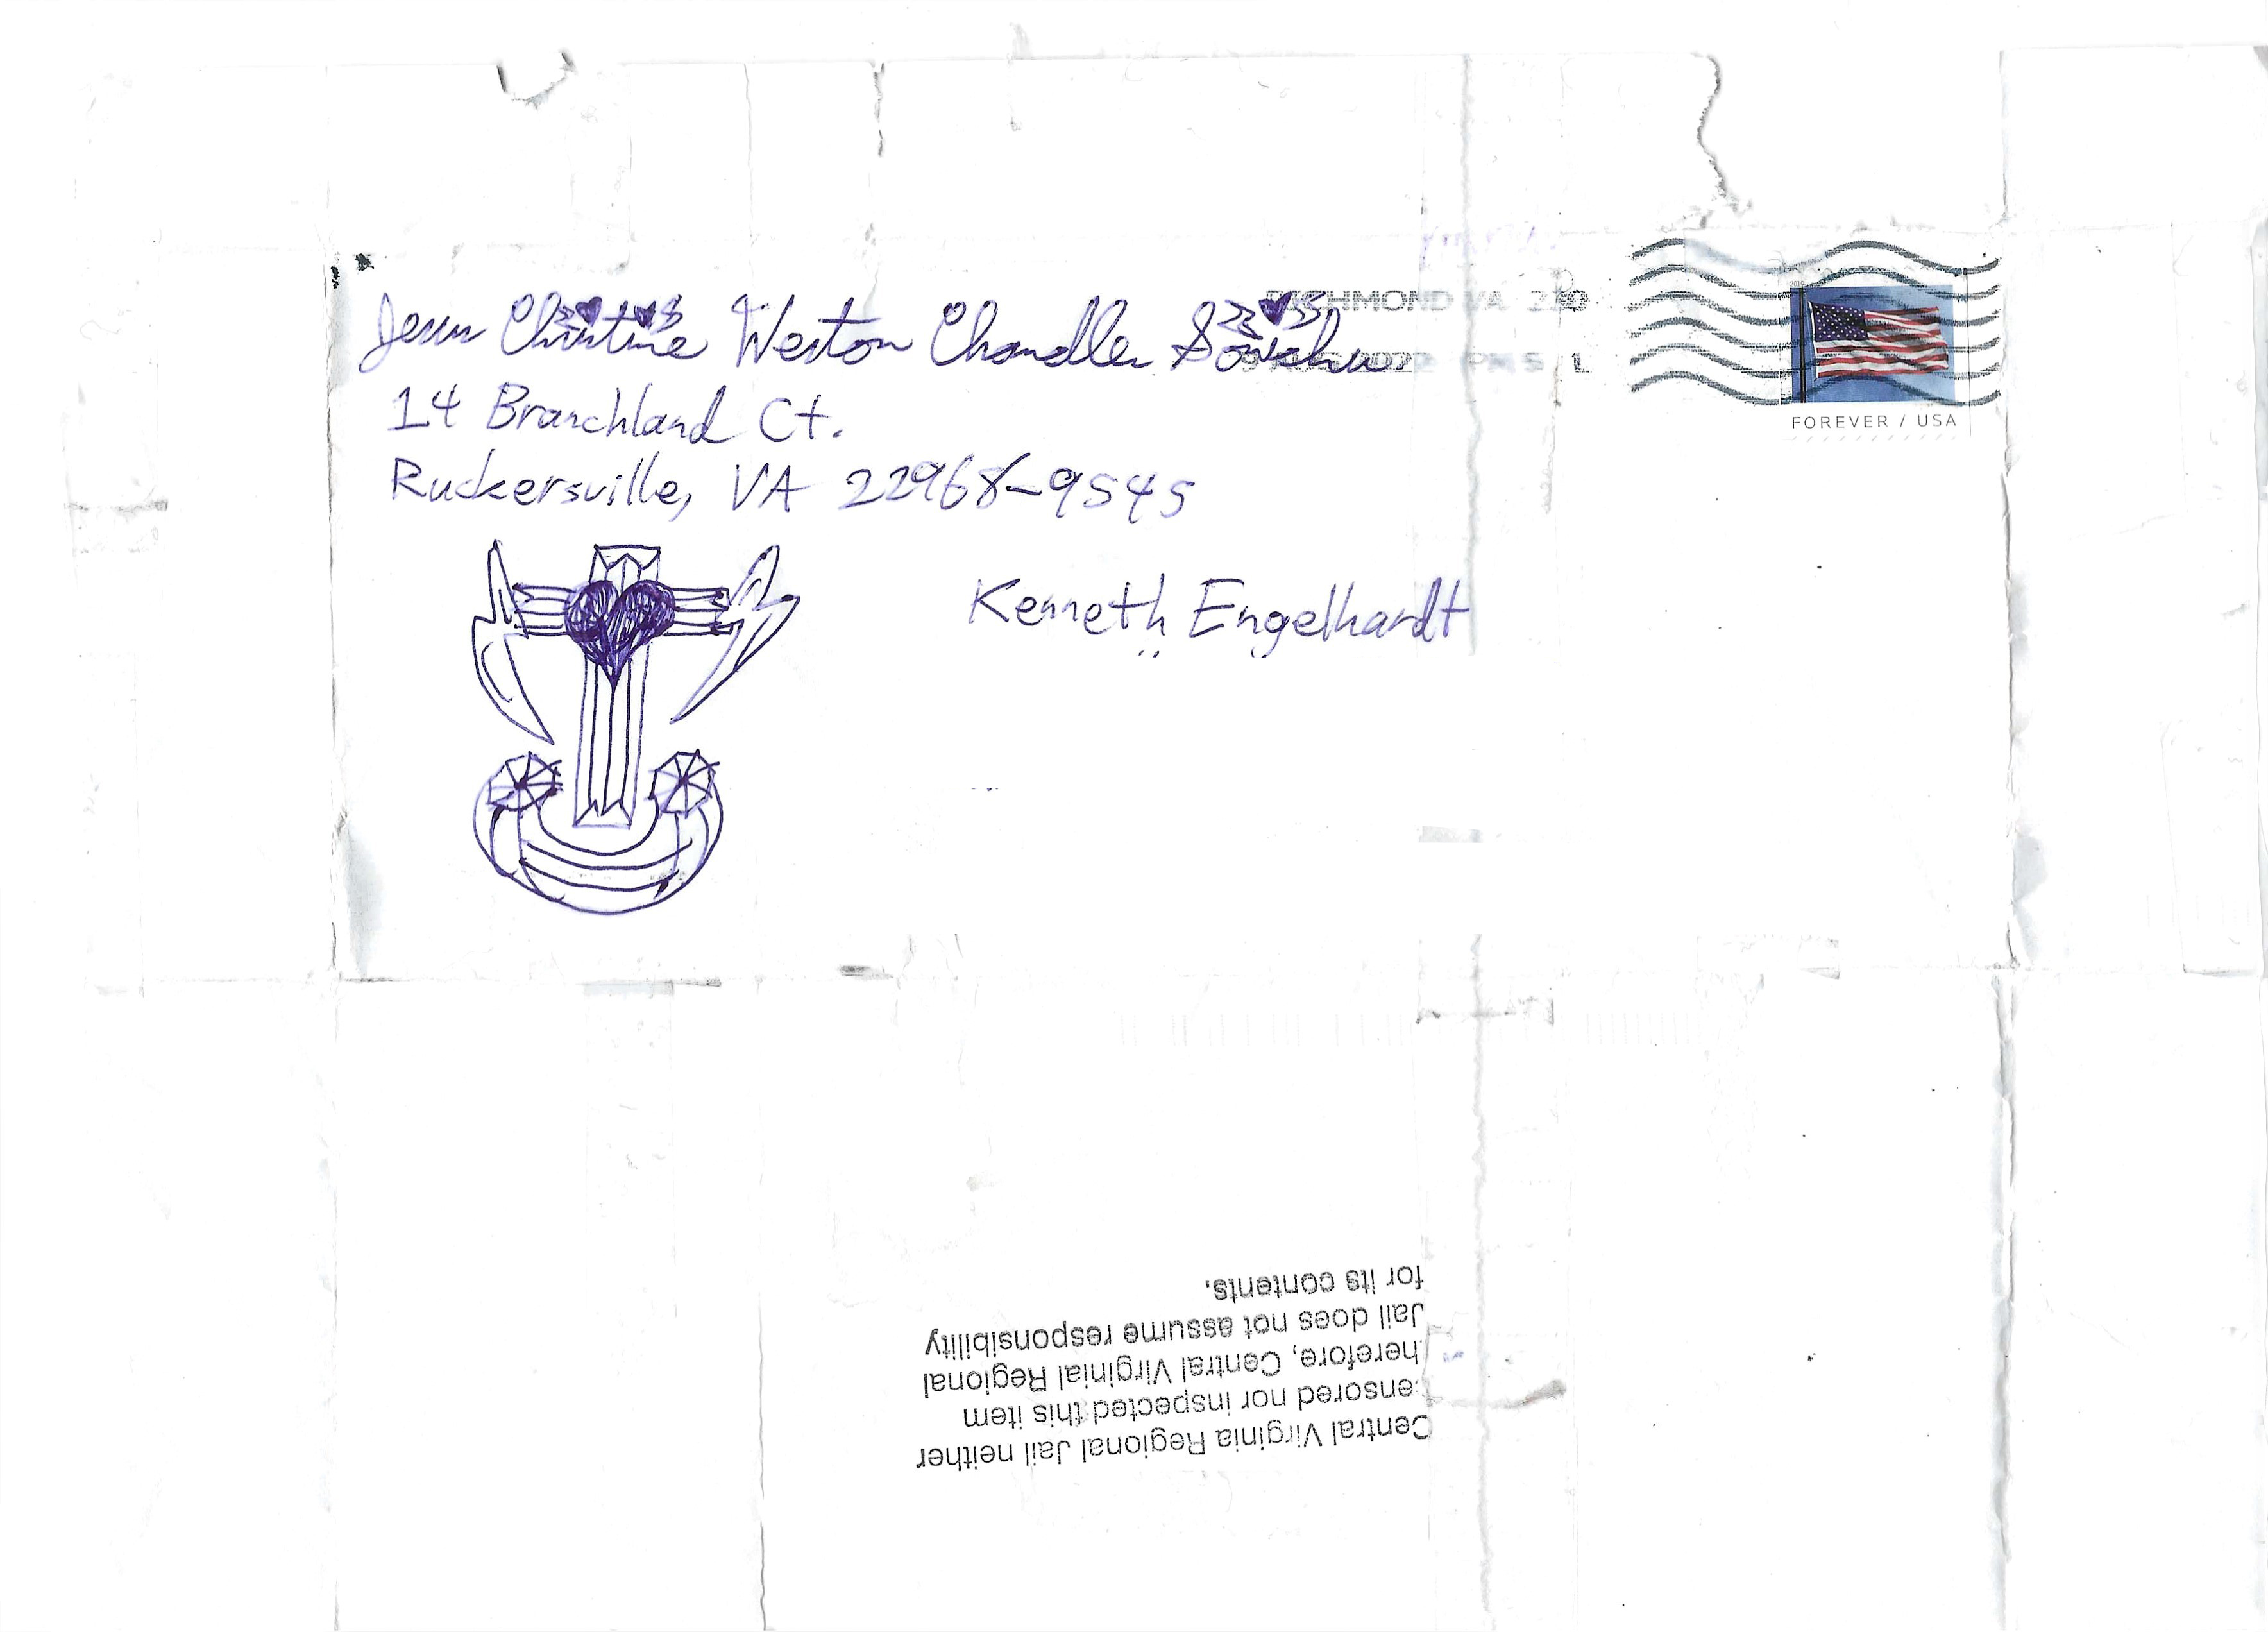 Jesus Christine Weston Chandler Sonichu.
14 Branchland Ct.
Ruckersville, VA 22968-9545
RICHMOND VA
2022 PM 5 L
2019
FOREVER / USA
Kenneth Engelhardt
Central Virginia Regional Jail neither
ensored nor inspected this item
herefore, Central Virginial Regional
Jail does not assume responsibility
for its contents.